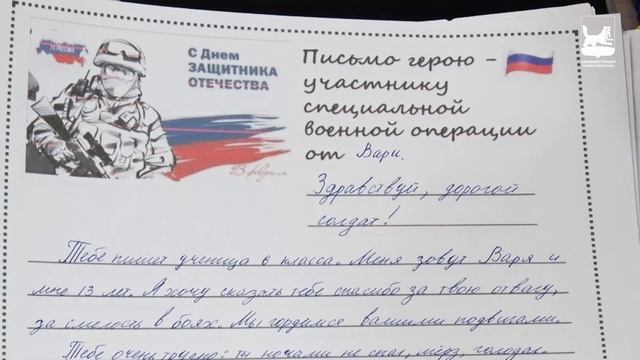 Zа РОССИЮ
С Днем
ЗАЩИТНИКА
ОТЕЧЕСТВА
23 февраля
Письмо герою –
участнику
специальной
военной операции
от Вари.
Здравствуй, дорогой
солдат!
Тебе пишет ученица 6 класса. Меня зовут Варя и
мне 13 лет. Я хочу сказать тебе спасибо за твою отвагу,
за смелость в боях. Мы гордимся вашими подвигами.
Тебе очень трудно: ты ночами не спал, мёрз, голодал.